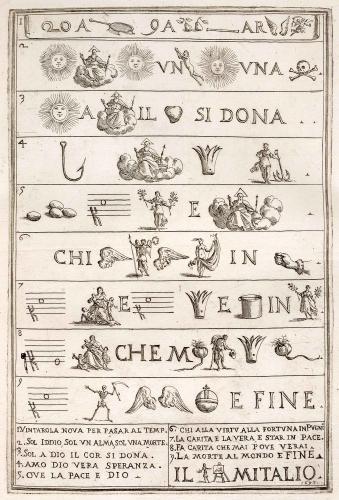 1 20 A 9A AR
2. VN VNA
3 A IL SI DONA
4
5 E
6 CHI IN
7 E E IN
8 CHE M
9 E FINE
1. VNTAROLA NOVA PER PASAR AL TEMP.
2. SOL IDDIO SOL VN ALMA SOL VNA MORTE.
3. SOL A DIO IL COR SI DONA.
4. AMO DIO VERA SPERANZA.
5. OVE LA PACE E DIO
6. CHI ALLA VIRTV ALLA FORTVNA IN PVGNO
7. LA CARITA E LA VERA E STAR IN PACE.
8. FA CARITA CHE MAI POVE VERAI.
9. LA MORTE AL MONDO E FINE.
IL MITALIO.